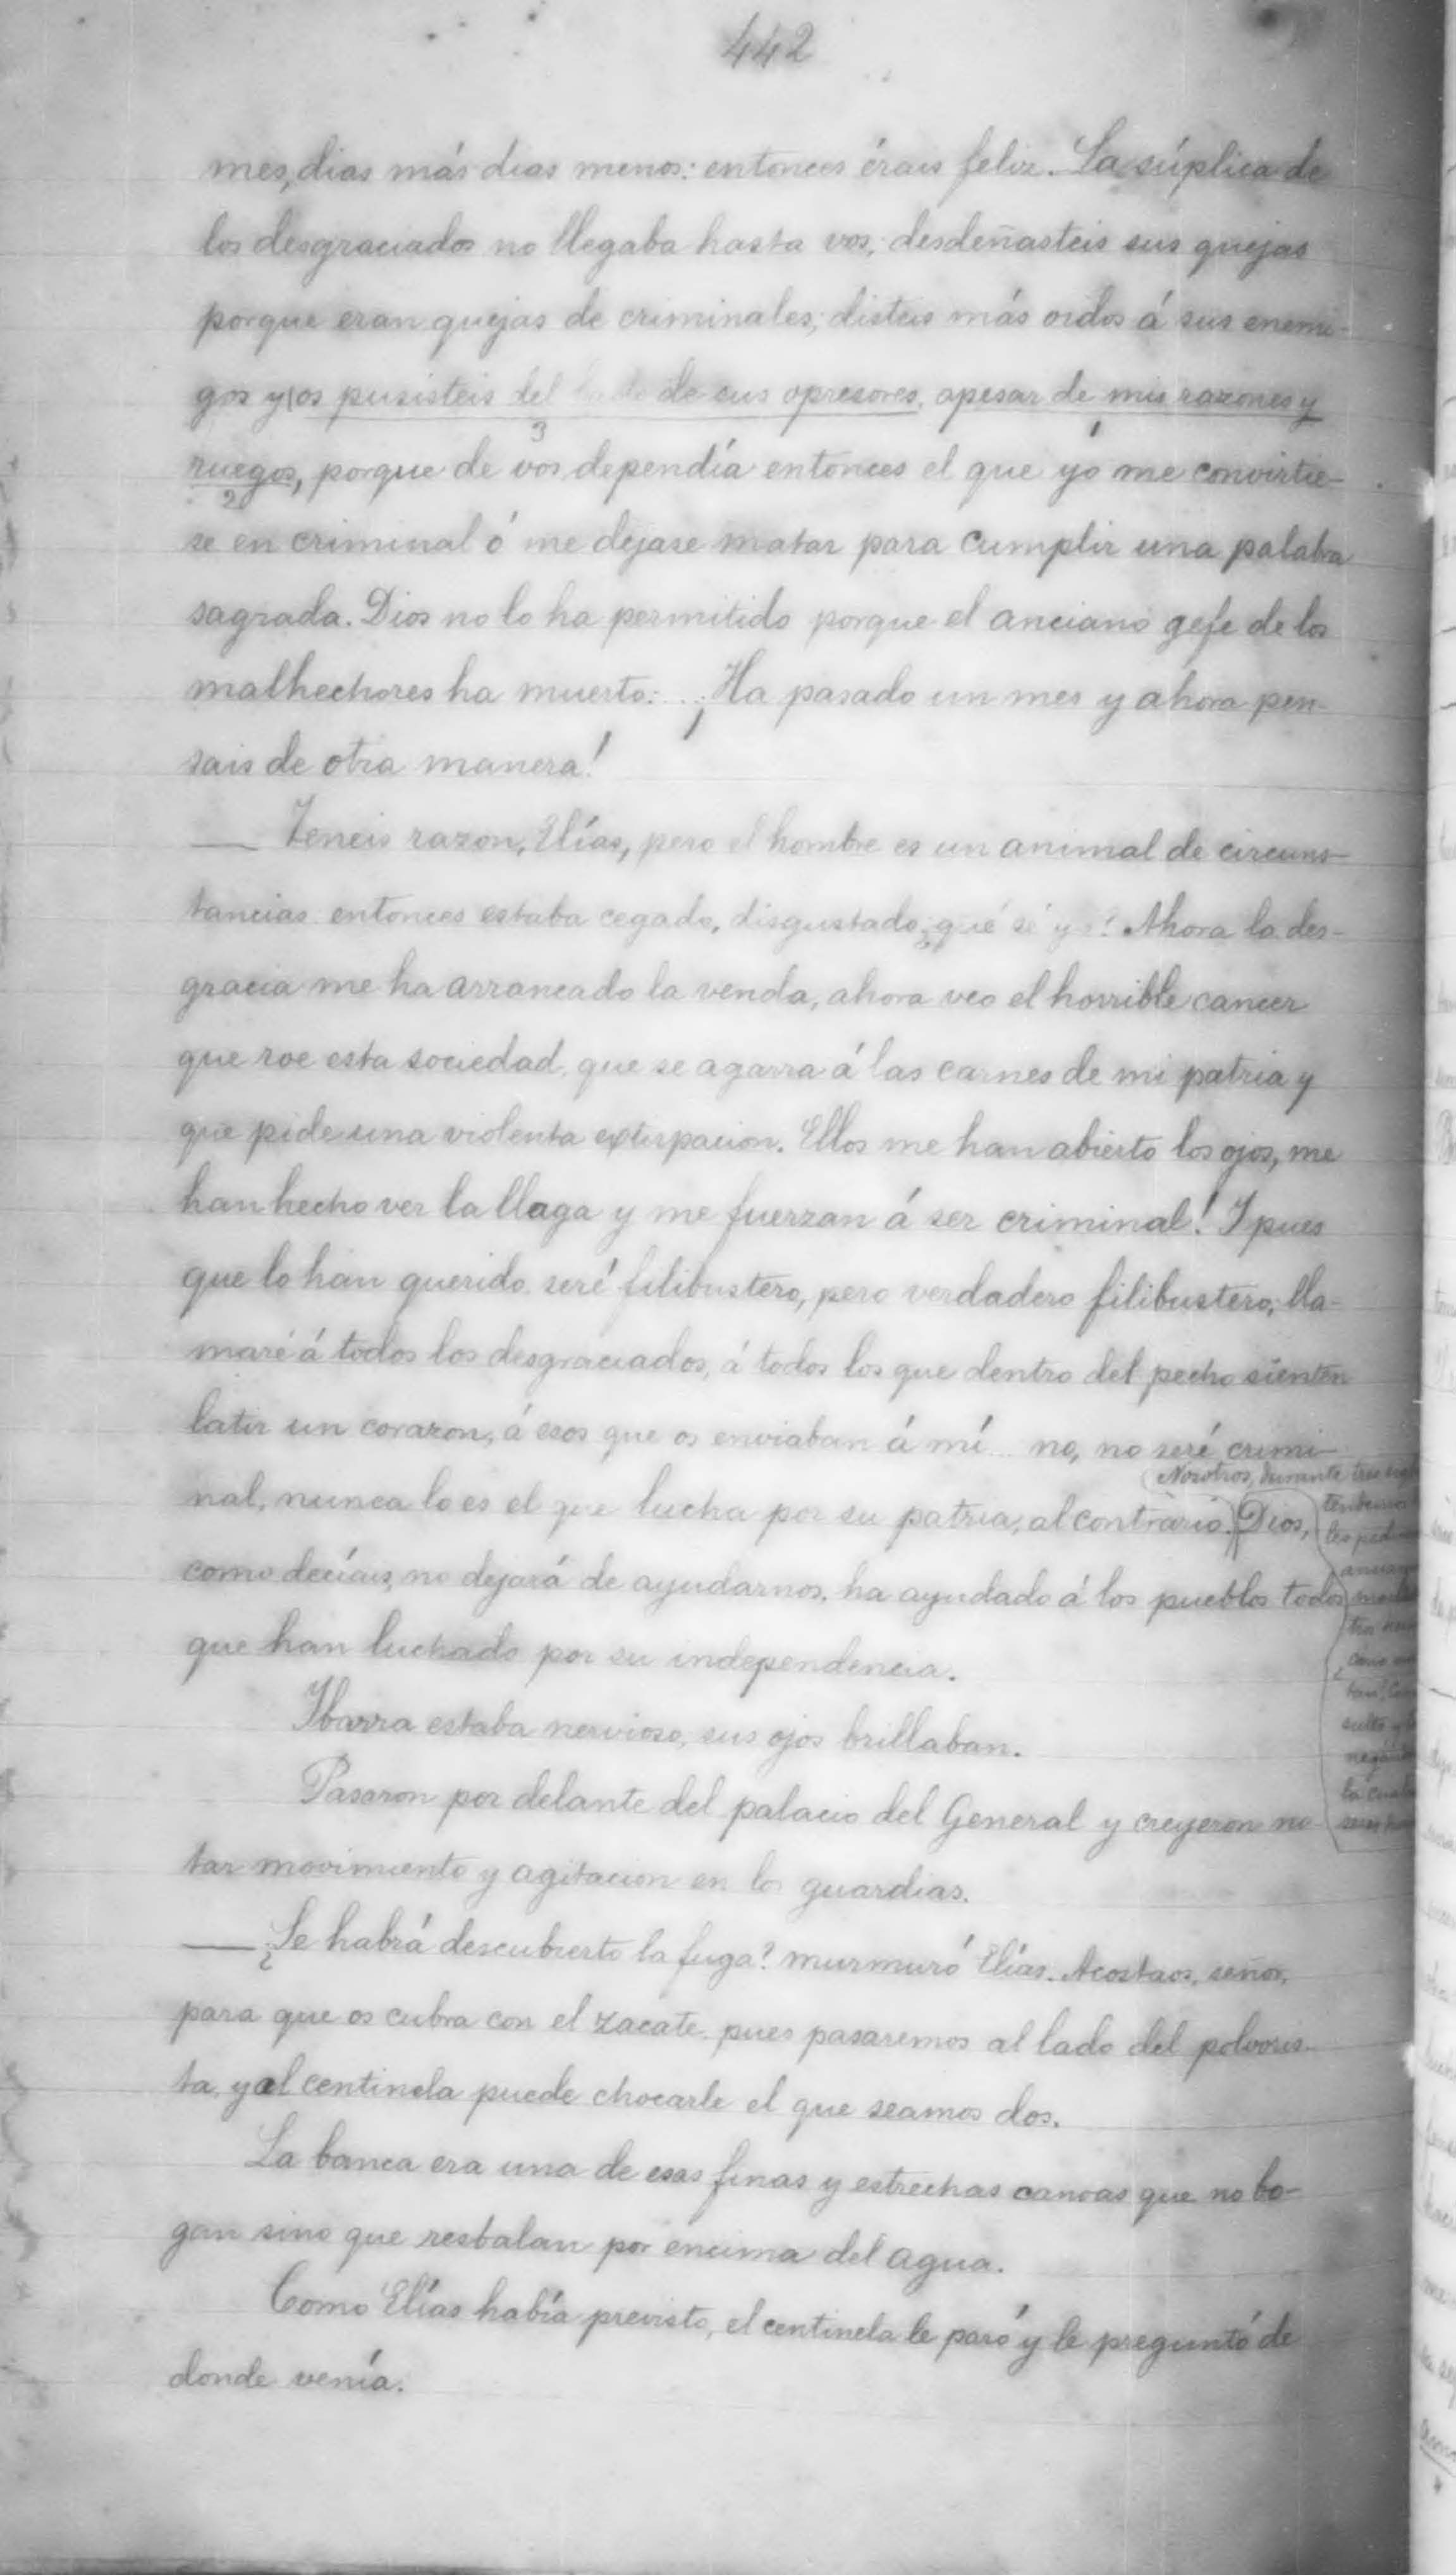 442
mes, dias más dias menos: entonces érais feliz. La súplica de
los desgraciados no llegaba hasta vos; desdeñasteis sus quejas
porque eran quejas de criminales; disteis más oidos á sus enemi-
gos y (os pusisteis del lado de sus opresores, apesar de mis razones y
3 1
ruegos, porque de vos dependía entonces el que yo me convirtie-
2
se en criminal ó me dejase matar para cumplir una palabra
sagrada. Dios no lo ha permitido porque el anciano gefe de los
malhechores ha muerto... ¡Ha pasado un mes y ahora pen-
sais de otra manera!
— Teneis razon, Elías, pero el hombre es un animal de circuns-
tancias: entonces estaba cegado, disgustado ¿qué sé yo? Ahora la des-
gracia me ha arrancado la venda, ahora veo el horrible cancer
que roe esta sociedad, que se agarra á las carnes de mi patria y
que pide una violenta extirpacion. Ellos me han abierto los ojos, me
han hecho ver la llaga y me fuerzan á ser criminal! Y pues
que lo han querido, seré filibustero, pero verdadero filibustero; lla-
maré á todos los desgraciados, á todos los que dentro del pecho sienten
latir un corazon, á esos que os enviaban á mí... no, no seré crimi-
nal, nunca lo es el que lucha por su patria, al contrario. Dios,
(Nosotros, durante tres
como decíais, no dejará de ayudarnos, ha ayudado á los pueblos todos
que han luchado por su independencia.
Ibarra estaba nervioso, sus ojos brillaban.
Pasaron por delante del palacio del General y creyeron no-
tar movimiento y agitacion en los guardias.
— ¿Se habrá descubierto la fuga? murmuró Elías. Acostaos, señor,
para que os cubra con el zacate, pues pasaremos al lado del polvoris-
ta, y al centinela puede chocarle el que seamos dos.
La banca era una de esas finas y estrechas canoas que no bo-
gan sino que resbalan por encima del agua.
Como Elías había previsto, el centinela le paró y le preguntó de
donde venía.